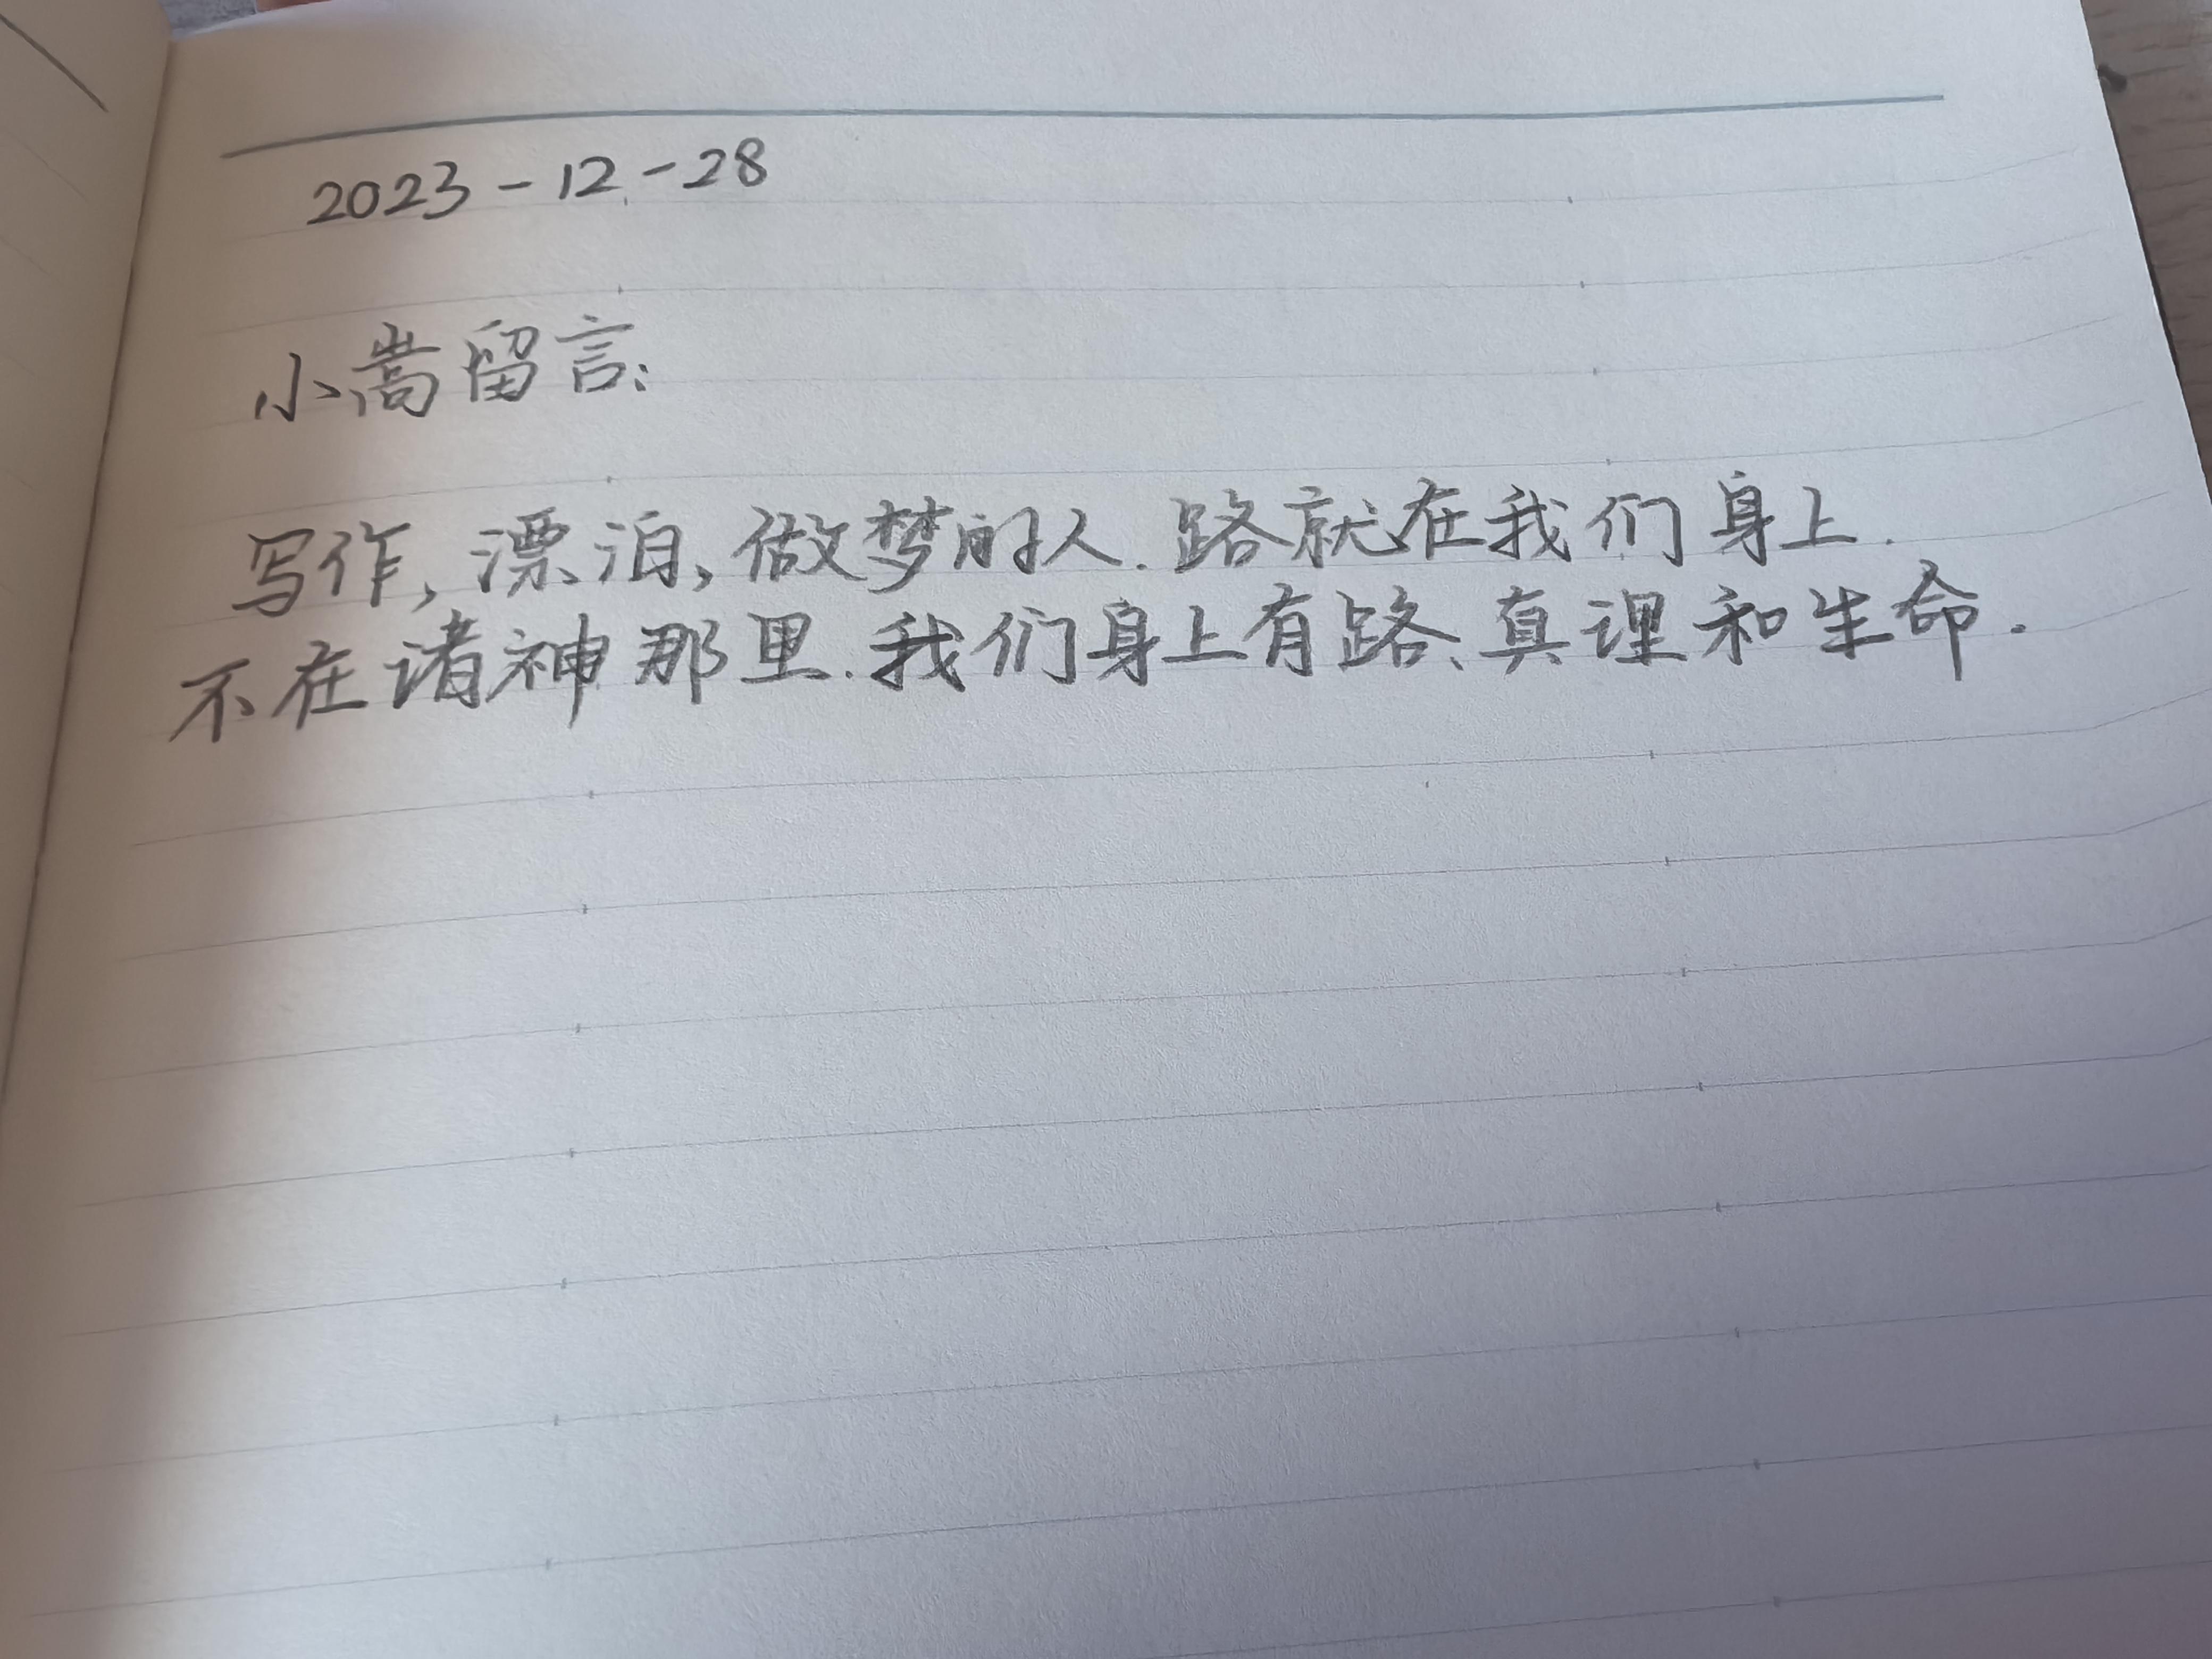 2023-12-28
小嵩留言:
写作,漂泊,做梦的人.路就在我们身上.
不在诸神那里.我们身上有路、真理和生命.